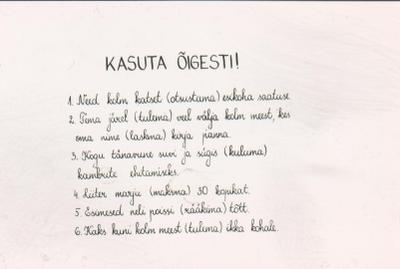 KASUTA ÕIGESTI!
1. Need kolm katset (otsustama) esikoha saatuse.
2. Tema järel (tulema) veel välja kolm meest, kes
oma nime (laskma) kirja panna.
3. Kogu tänavune suvi ja sügis (kuluma)
kambrite ehitamiseks.
4. Liiter marju (maksma) 30 kopikat.
5. Esimesed neli poissi (rääkima) tõtt.
6. Kaks kuni kolm meest (tulema) ikka kohale.